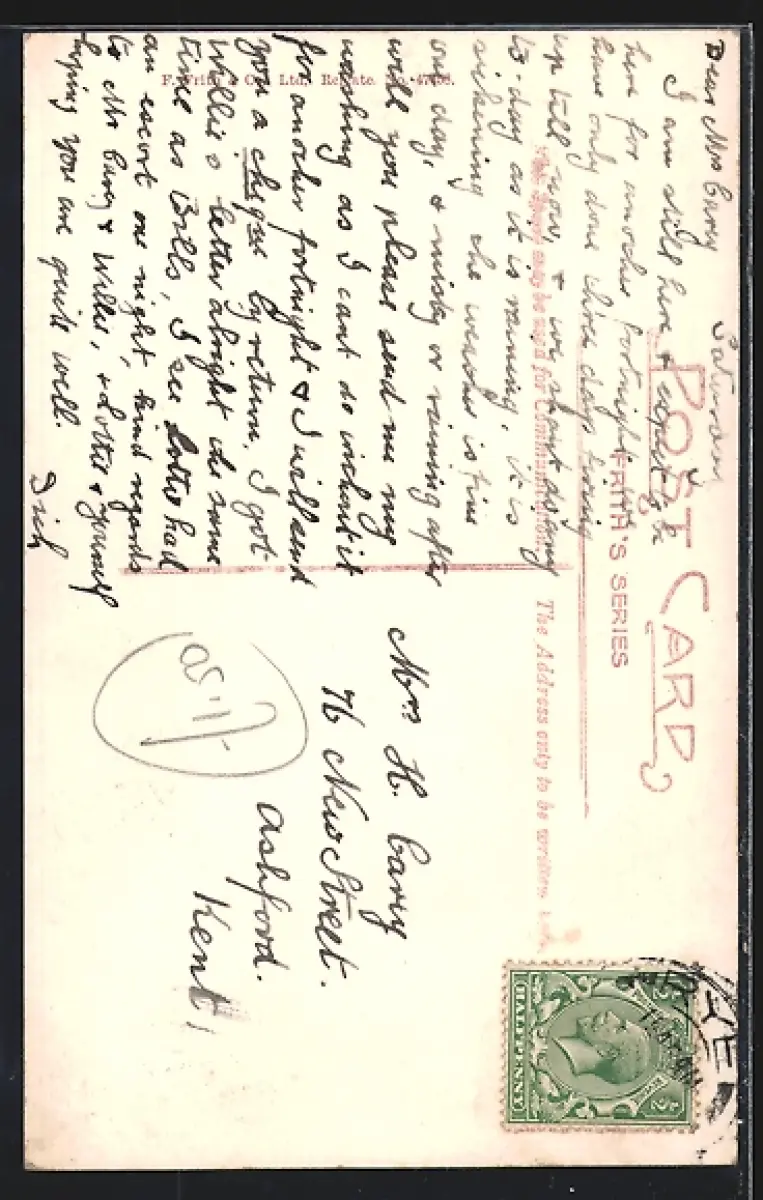 POST CARD
FRITH'S SERIES
This Space may be used for Communication.
The Address only to be written
F. Frith & Co., Ltd., Reigate. No.
Dear Mrs Carey Saturday
I am still here & expect to be
here for another fortnight,
have only done three days firing
up till now, & we shant do any
to-day as it is raining, it is
sickening the weather is fine
one day, & misty or raining after
will you please send me my
washing as I cant do without it
for another fortnight & I will send
you a cheque by return, I got
Willie's letter alright the same
time as Bills, I see Lottie had
an escort one night, kind regards
to Mr Carey & Willie, & Lottie & yourself
hoping you are quite well.
Dick
Mrs H. Carey
76 New Street.
Ashford.
Kent
RYE
HALFPENNY